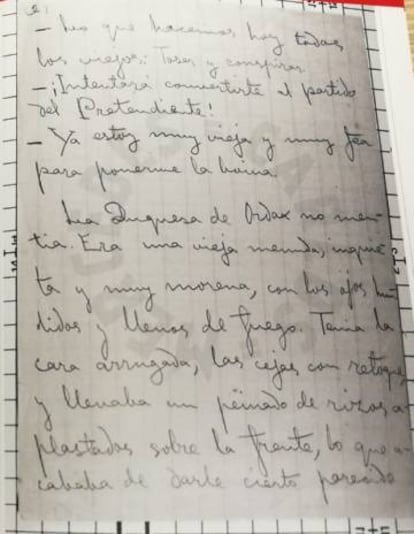 2.
– Lo que hacemos hoy todas
los viejos: Toser y conspirar.
– ¡Intentará convertirte al partido
del Pretendiente!
– Ya estoy muy vieja y muy fea
para ponerme la boina.
La Duquesa de Ordax no men-
tia. Era una vieja menuda, inquie-
ta y muy morena, con los ojos hun-
didos y llenos de fuego. Tenia la
cara arrugada, las cejas con retoque,
y llevaba un peinado de rizos a-
plastados sobre la frente, lo que a-
cababa de darle cierto parecido